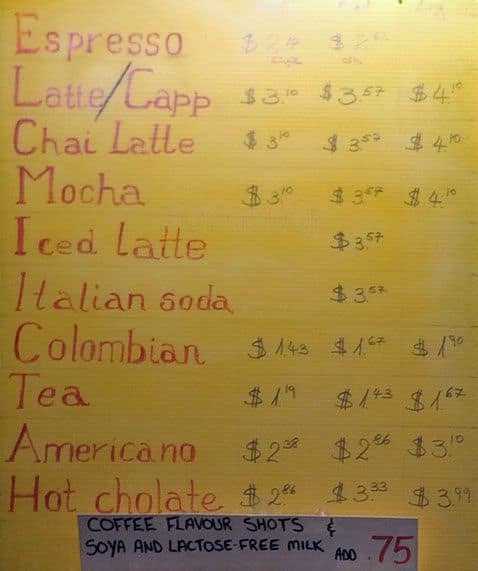 Espresso $2.
Latte/Capp $3.10 $3.57 $4.10
Chai Latte $3.10 $3.57 $4.10
Mocha $3.10 $3.57 $4.10
Iced Latte $3.57
Italian soda $3.57
Colombian $1.43 $1.67 $1.90
Tea $1.19 $1.43 $1.67
Americano $2.38 $2.86 $3.10
Hot cholate $2.86 $3.33 $3.99
COFFEE FLAVOUR SHOTS &
SOYA AND LACTOSE-FREE MILK ADD .75